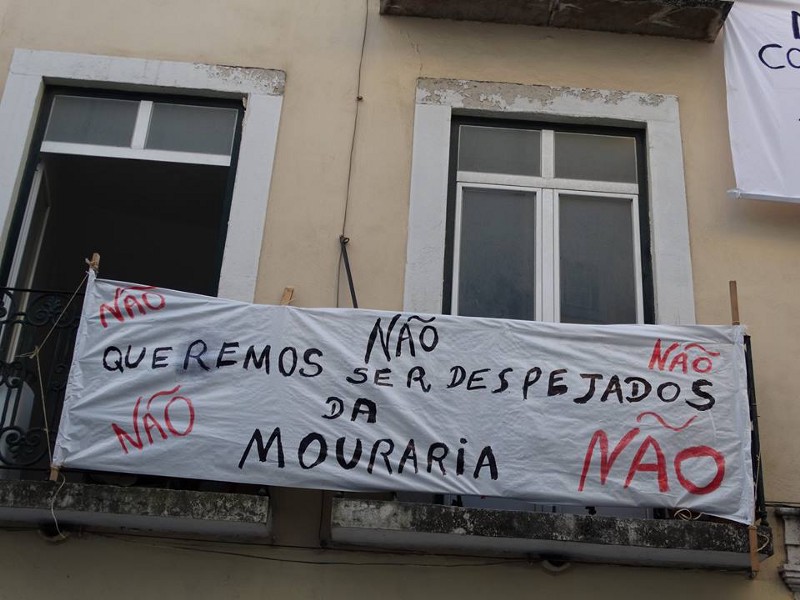 NÃO
NÃO
QUEREMOS SER DESPEJADOS
NÃO
DA
NÃO
MOURARIA
NÃO
CO